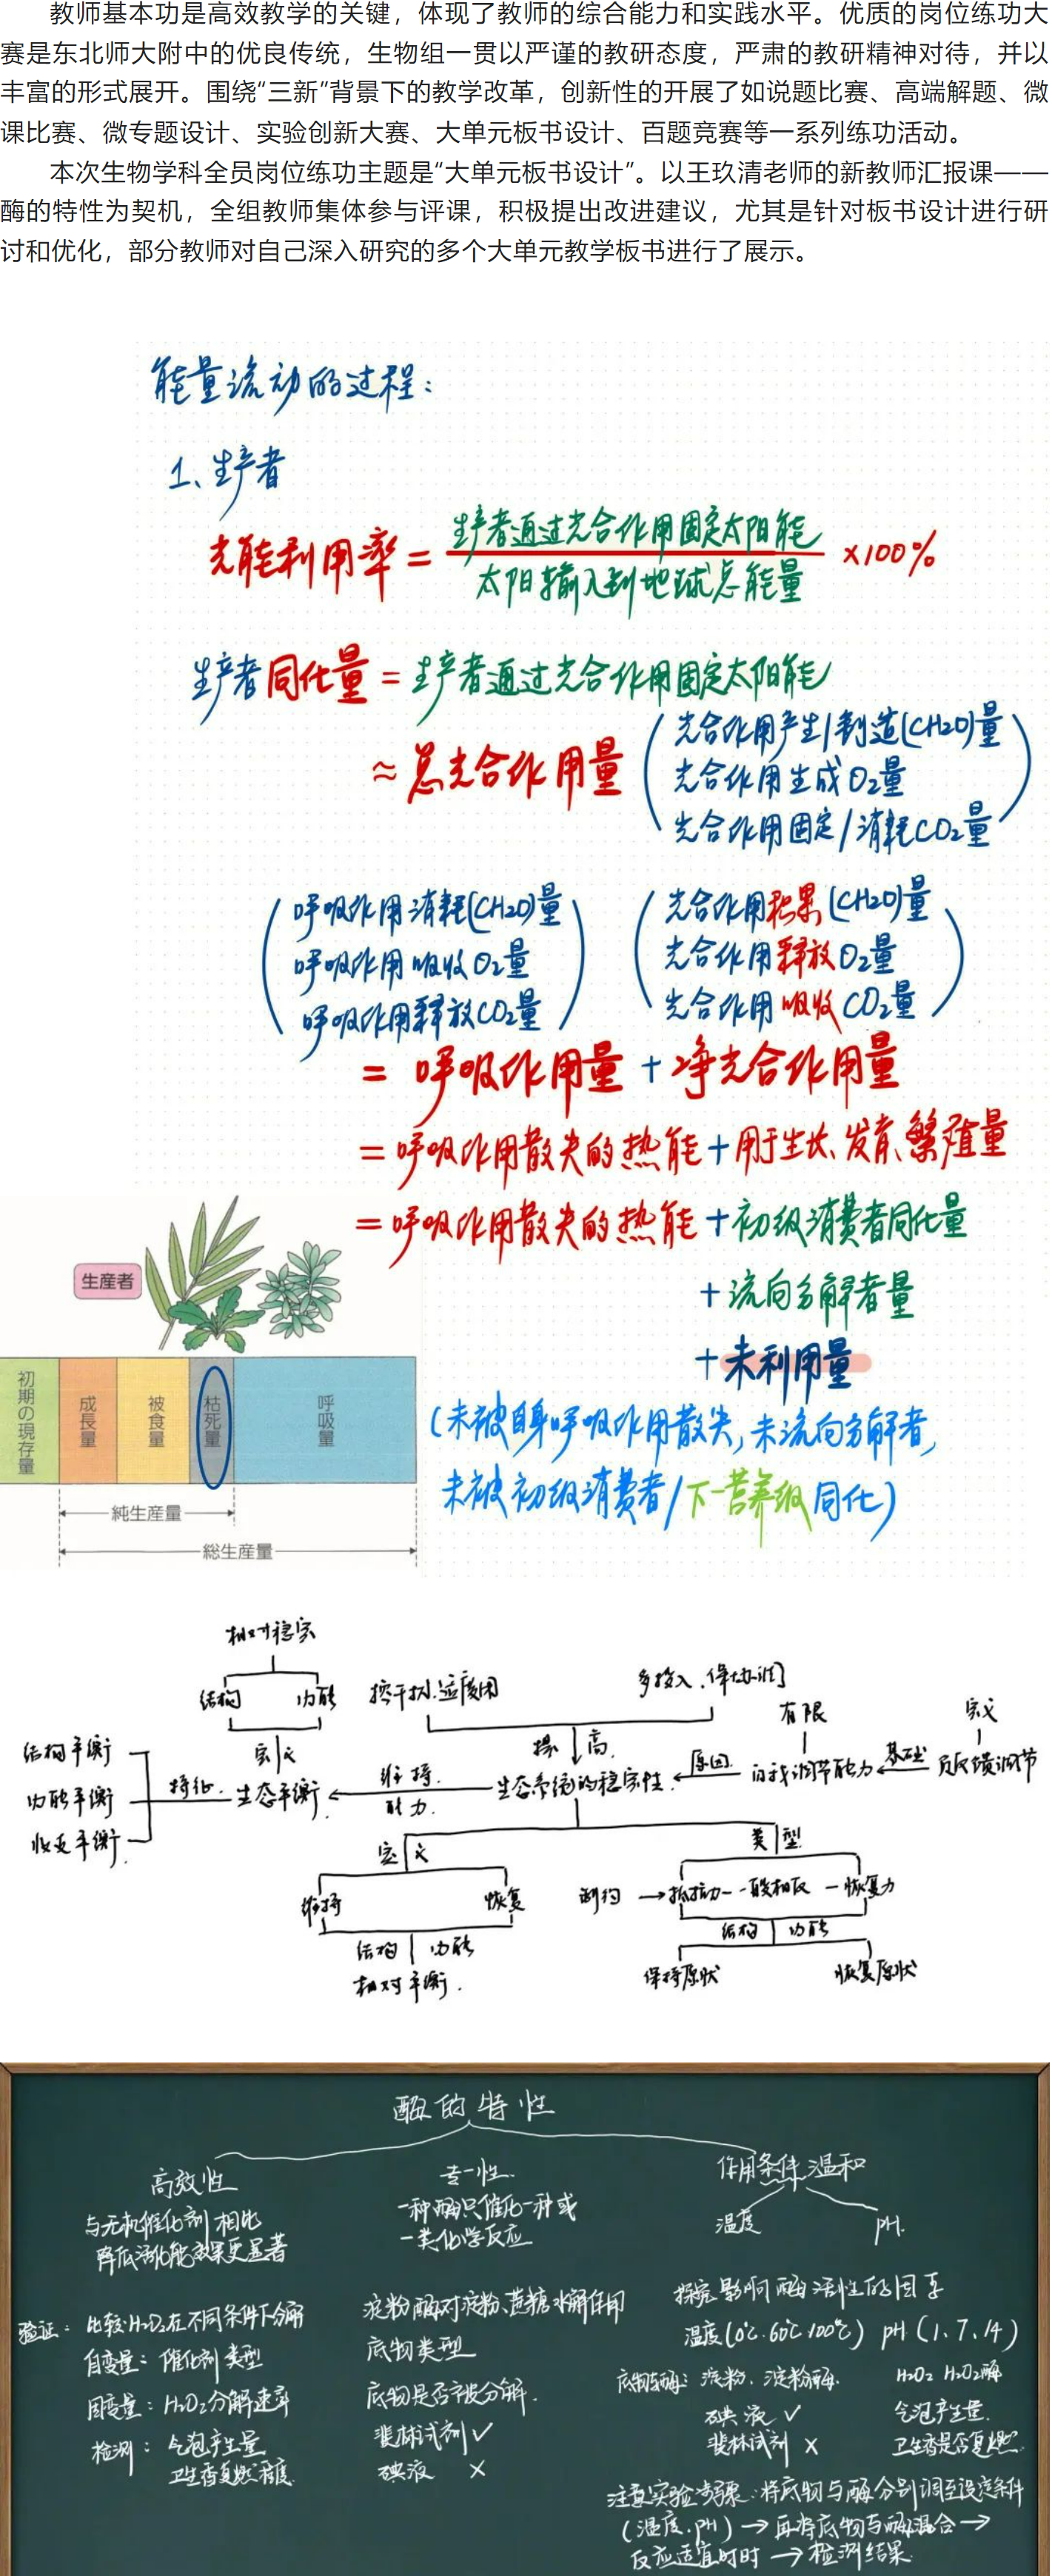 教师基本功是高效教学的关键，体现了教师的综合能力和实践水平。优质的岗位练功大
赛是东北师大附中的优良传统，生物组一贯以严谨的教研态度，严肃的教研精神对待，并以
丰富的形式展开。围绕“三新”背景下的教学改革，创新性的开展了如说题比赛、高端解题、微
课比赛、微专题设计、实验创新大赛、大单元板书设计、百题竞赛等一系列练功活动。
本次生物学科全员岗位练功主题是“大单元板书设计”。以王玖清老师的新教师汇报课——
酶的特性为契机，全组教师集体参与评课，积极提出改进建议，尤其是针对板书设计进行研
讨和优化，部分教师对自己深入研究的多个大单元教学板书进行了展示。
能量流动的过程：
1、生产者
光能利用率 = 生产者通过光合作用固定太阳能 ×100%
太阳输入到地球总能量
生产者同化量 = 生产者通过光合作用固定太阳能
≈ 总光合作用量
光合作用产生/制造(CH2O)量
光合作用生成O2量
光合作用固定/消耗CO2量
呼吸作用消耗(CH2O)量
呼吸作用吸收O2量
呼吸作用释放CO2量
光合作用积累(CH2O)量
光合作用释放O2量
光合作用吸收CO2量
= 呼吸作用量 + 净光合作用量
= 呼吸作用散失的热能 + 用于生长、发育、繁殖量
= 呼吸作用散失的热能 + 初级消费者同化量
+ 流向分解者量
+ 未利用量
(未被自身呼吸作用散失, 未流向分解者,
未被初级消费者/下一营养级同化)
生産者
初期の現存量
成長量
被食量
枯死量
呼吸量
純生産量
総生産量
相对稳定
结构 功能
定义
结构平衡
功能平衡
收支平衡
特征
生态平衡
维持
能力
控干扰.适度用
多投入.保协调
提高
生态系统的稳定性
原因
有限
自我调节能力
基础
定义
负反馈调节
定义
维持 恢复
结构 功能
相对平衡.
类型
抵抗力 - 一般相反 - 恢复力
结构 功能
保持原状 恢复原状
酶的特性
高效性
与无机催化剂相比
降低活化能效果更显著
专一性
一种酶只催化一种或
一类化学反应
作用条件温和
温度 pH.
验证: 比较H2O2在不同条件下分解
自变量: 催化剂类型
因变量: H2O2分解速率
检测: 气泡产生量
卫生香复燃程度
淀粉酶对淀粉、蔗糖水解作用
底物类型
底物是否被分解.
斐林试剂 ✓
碘液 ×
探究影响酶活性的因素
温度(0℃.60℃.100℃) pH (1、7、14)
淀粉、淀粉酶.
碘液 ✓
斐林试剂 ×
H2O2 H2O2酶
气泡产生量.
卫生香是否复燃
注意实验步骤: 将底物与酶分别调至设定条件
(温度.pH) → 再将底物与酶混合 →
反应适宜时时 → 检测结果